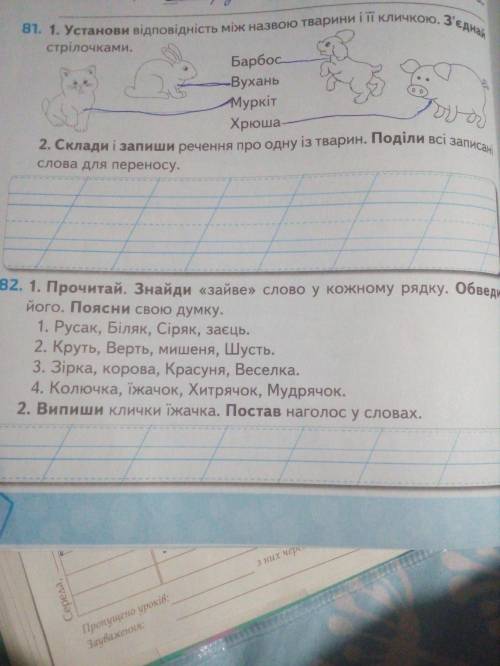 81. 1. Установи відповідність між назвою тварини і її кличкою. З'єднай
стрілочками.
Барбос
Вухань
Муркіт
Хрюша
2. Склади і запиши речення про одну із тварин. Поділи всі записані
слова для переносу.
82. 1. Прочитай. Знайди «зайве» слово у кожному рядку. Обведи
його. Поясни свою думку.
1. Русак, Біляк, Сіряк, заєць.
2. Круть, Верть, мишеня, Шусть.
3. Зірка, корова, Красуня, Веселка.
4. Колючка, їжачок, Хитрячок, Мудрячок.
2. Випиши клички їжачка. Постав наголос у словах.
Середа,
з них чер
Пропущено уроків:
Зауваження: